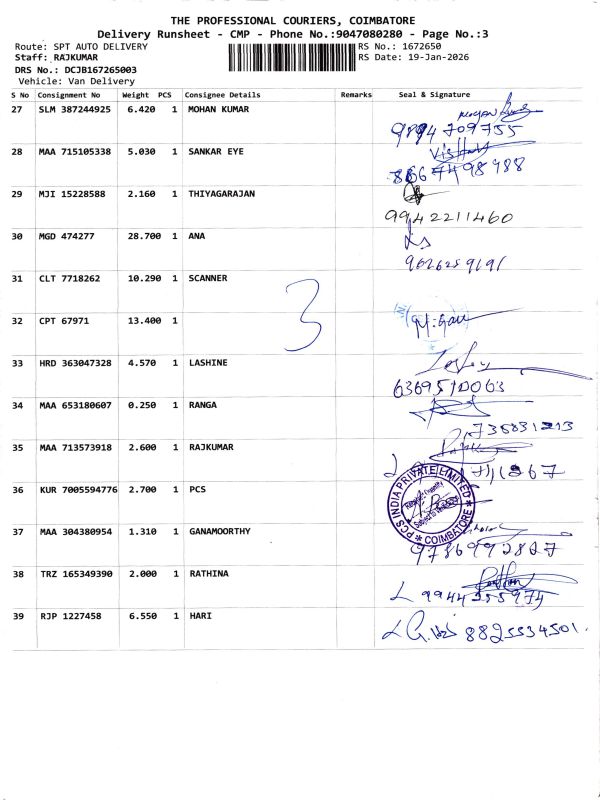 THE PROFESSIONAL COURIERS, COIMBATORE
Delivery Runsheet - CMP - Phone No.:9047080280 - Page No.:3
Route: SPT AUTO DELIVERY RS No.: 1672650
Staff: RAJKUMAR RS Date: 19-Jan-2026
DRS No.: DCJB167265003
Vehicle: Van Delivery
S No Consignment No Weight PCS Consignee Details Remarks Seal & Signature
27 SLM 387244925 6.420 1 MOHAN KUMAR
9894709755
28 MAA 715105338 5.030 1 SANKAR EYE
29 MJI 15228588 2.160 1 THIYAGARAJAN
9942211460
30 MGD 474277 28.700 1 ANA
9626259191
31 CLT 7718262 10.290 1 SCANNER
3
32 CPT 67971 13.400 1
33 HRD 363047328 4.570 1 LASHINE
6369510063
34 MAA 653180607 0.250 1 RANGA
35 MAA 713573918 2.600 1 RAJKUMAR
36 KUR 7005594776 2.700 1 PCS
PCS INDIA PRIVATE LIMITED
* COIMBATORE *
37 MAA 304380954 1.310 1 GANAMOORTHY
38 TRZ 165349390 2.000 1 RATHINA
9944355974
39 RJP 1227458 6.550 1 HARI
8825534501